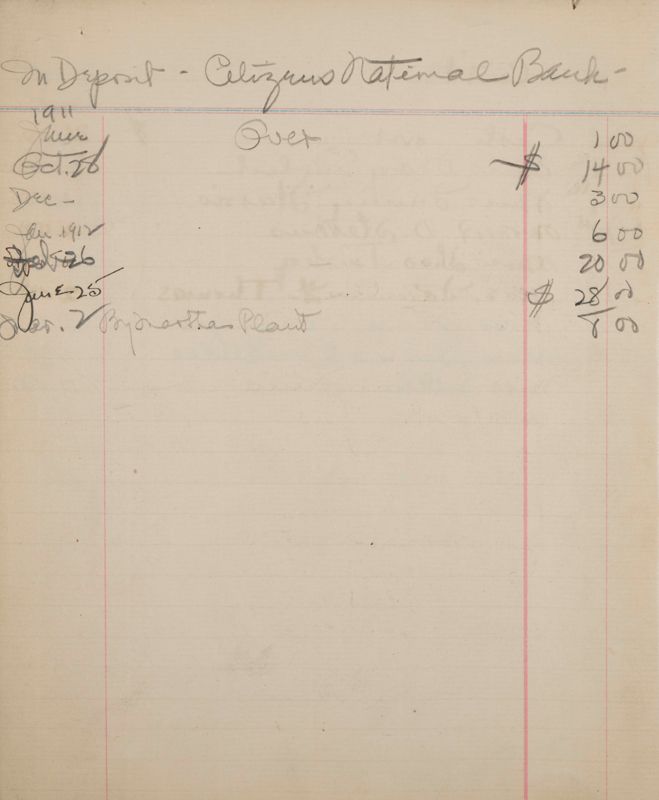 In Deposit - Citizens National Bank -
1911
June Over 1 00
Oct. 28 $ 14 00
Dec - 3 00
Jan 1912 6 00
26 20 00
June 25 $ 28 00
Mar. 2 By Martha Plant 8 00